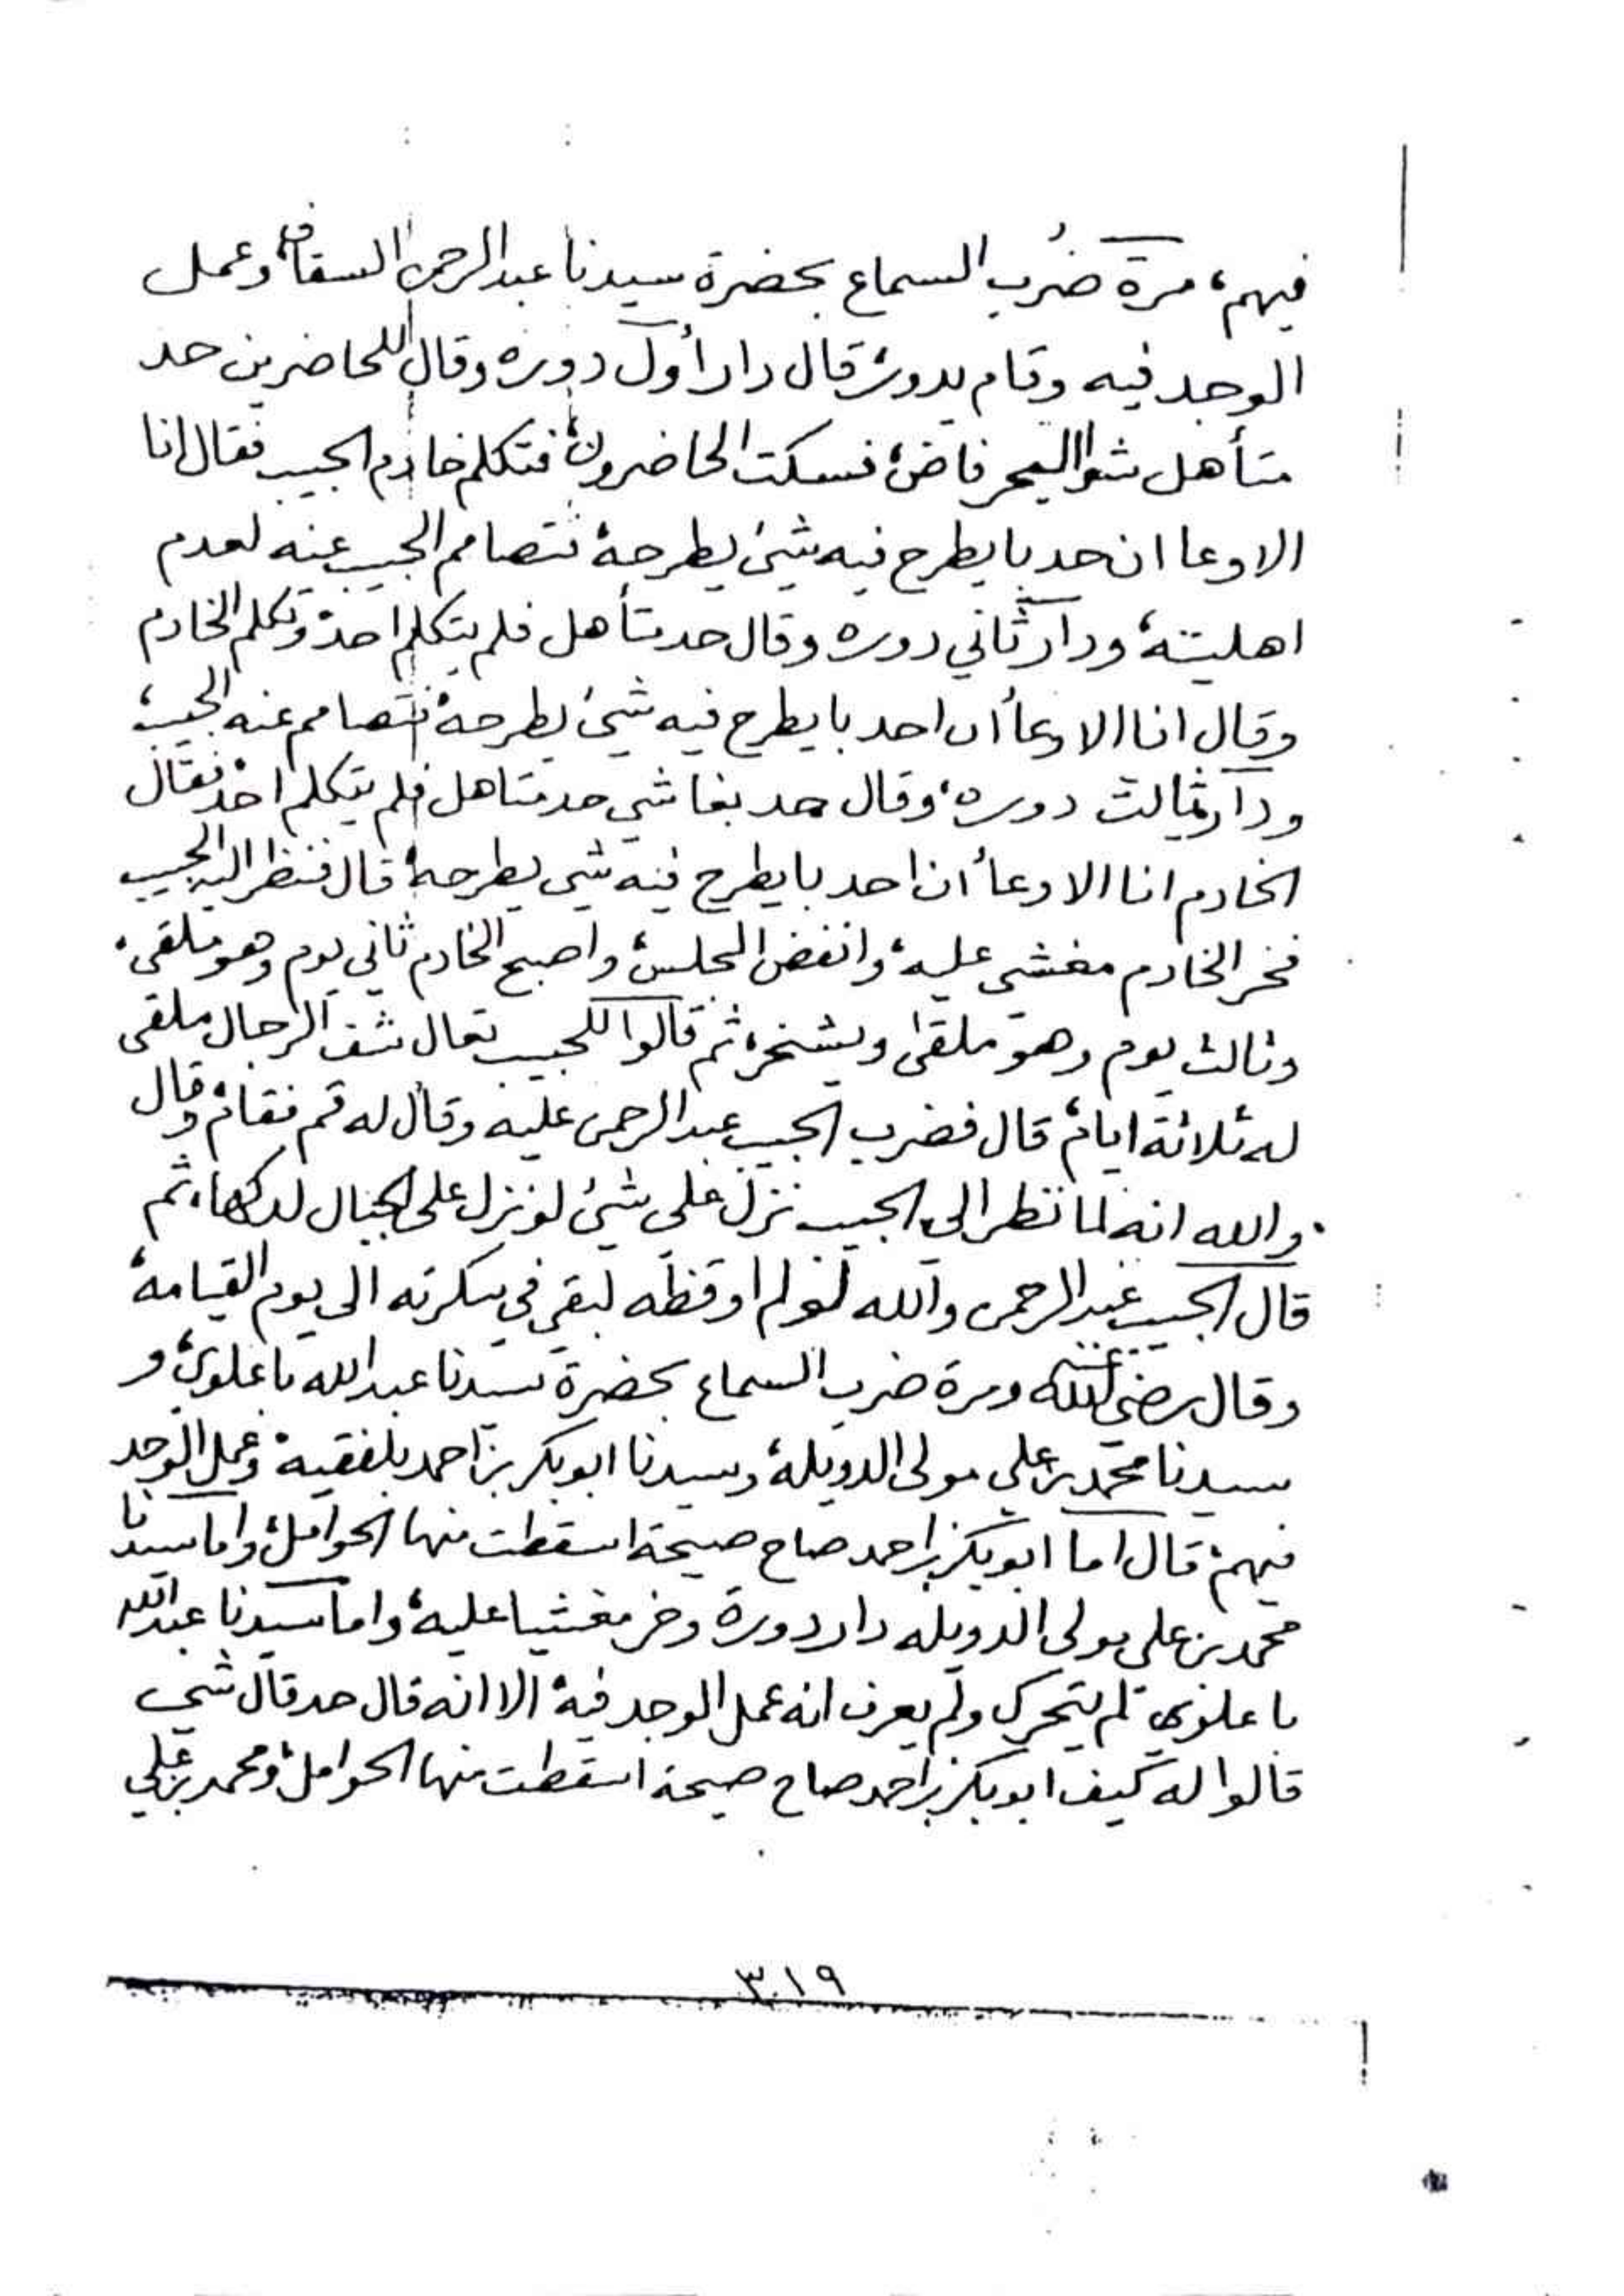 فيهم، مرة ضُرب السماع بحضرة سيدنا عبدالرحمن السقاف، وعمل
الوجد فيه وقام يدور، قال دار أول دوره وقال للحاضرين حد
متأهل شوا البحر فاض، فسكت الحاضرون، فتكلم خادم الحبيب فقال انا
الاوعا ان حد با يطرح فيه شيئ يطرحه، فتصامم الحبيب عنه لعدم
اهليته، ودار ثاني دوره وقال حد متأهل فلم يتكلم احد، وتكلم الخادم
وقال انا الاوعأ ان احد با يطرح فيه شيئ يطرحه، فتصامم عنه الحبيب،
ودار ثالث دوره، وقال حد بغا شي حد متاهل فلم يتكلم احد، فقال
الخادم انا الاوعأ ان احد با يطرح فيه شي يطرحه، قال فنظر اليه الحبيب
فخر الخادم مغشي عليه، وانفض المجلس، واصبح الخادم ثاني يوم وهو ملقى،
وثالث يوم وهو ملقى ويشنخر، ثم قالوا للحبيب تعال شف الرجال ملقى
له ثلاثة ايام، قال فضرب الحبيب عبدالرحمن عليه وقال له قم فقام، وقال
والله انه لما نظر الى الحبيب نزل على شيئ لو نزل على الجبال لدكها، ثم
قال الحبيب عبدالرحمن والله لولم اوقظه لبقي في سكرته الى يوم القيامة،
وقال رضي الله عنه ومرة ضرب السماع بحضرة سيدنا عبدالله باعلوي، و
سيدنا محمد بن علي مولى الدويلة، وسيدنا ابوبكر بن احمد بلفقيه، وعمل الوجد
فيهم، قال اما ابوبكر بن احمد صاح صيحة اسقطت منها الحوامل، واما سيدنا
محمد بن علي مولى الدويله دار دورة وخر مغشيا عليه، واما سيدنا عبدالله
باعلوي لم يتحرك ولم يعرف انه عمل الوجد فيه، الا انه قال حد قال شي
قالوا له كيف ابوبكر بن احمد صاح صيحة اسقطت منها الحوامل، ومحمد بن علي
٣١٩